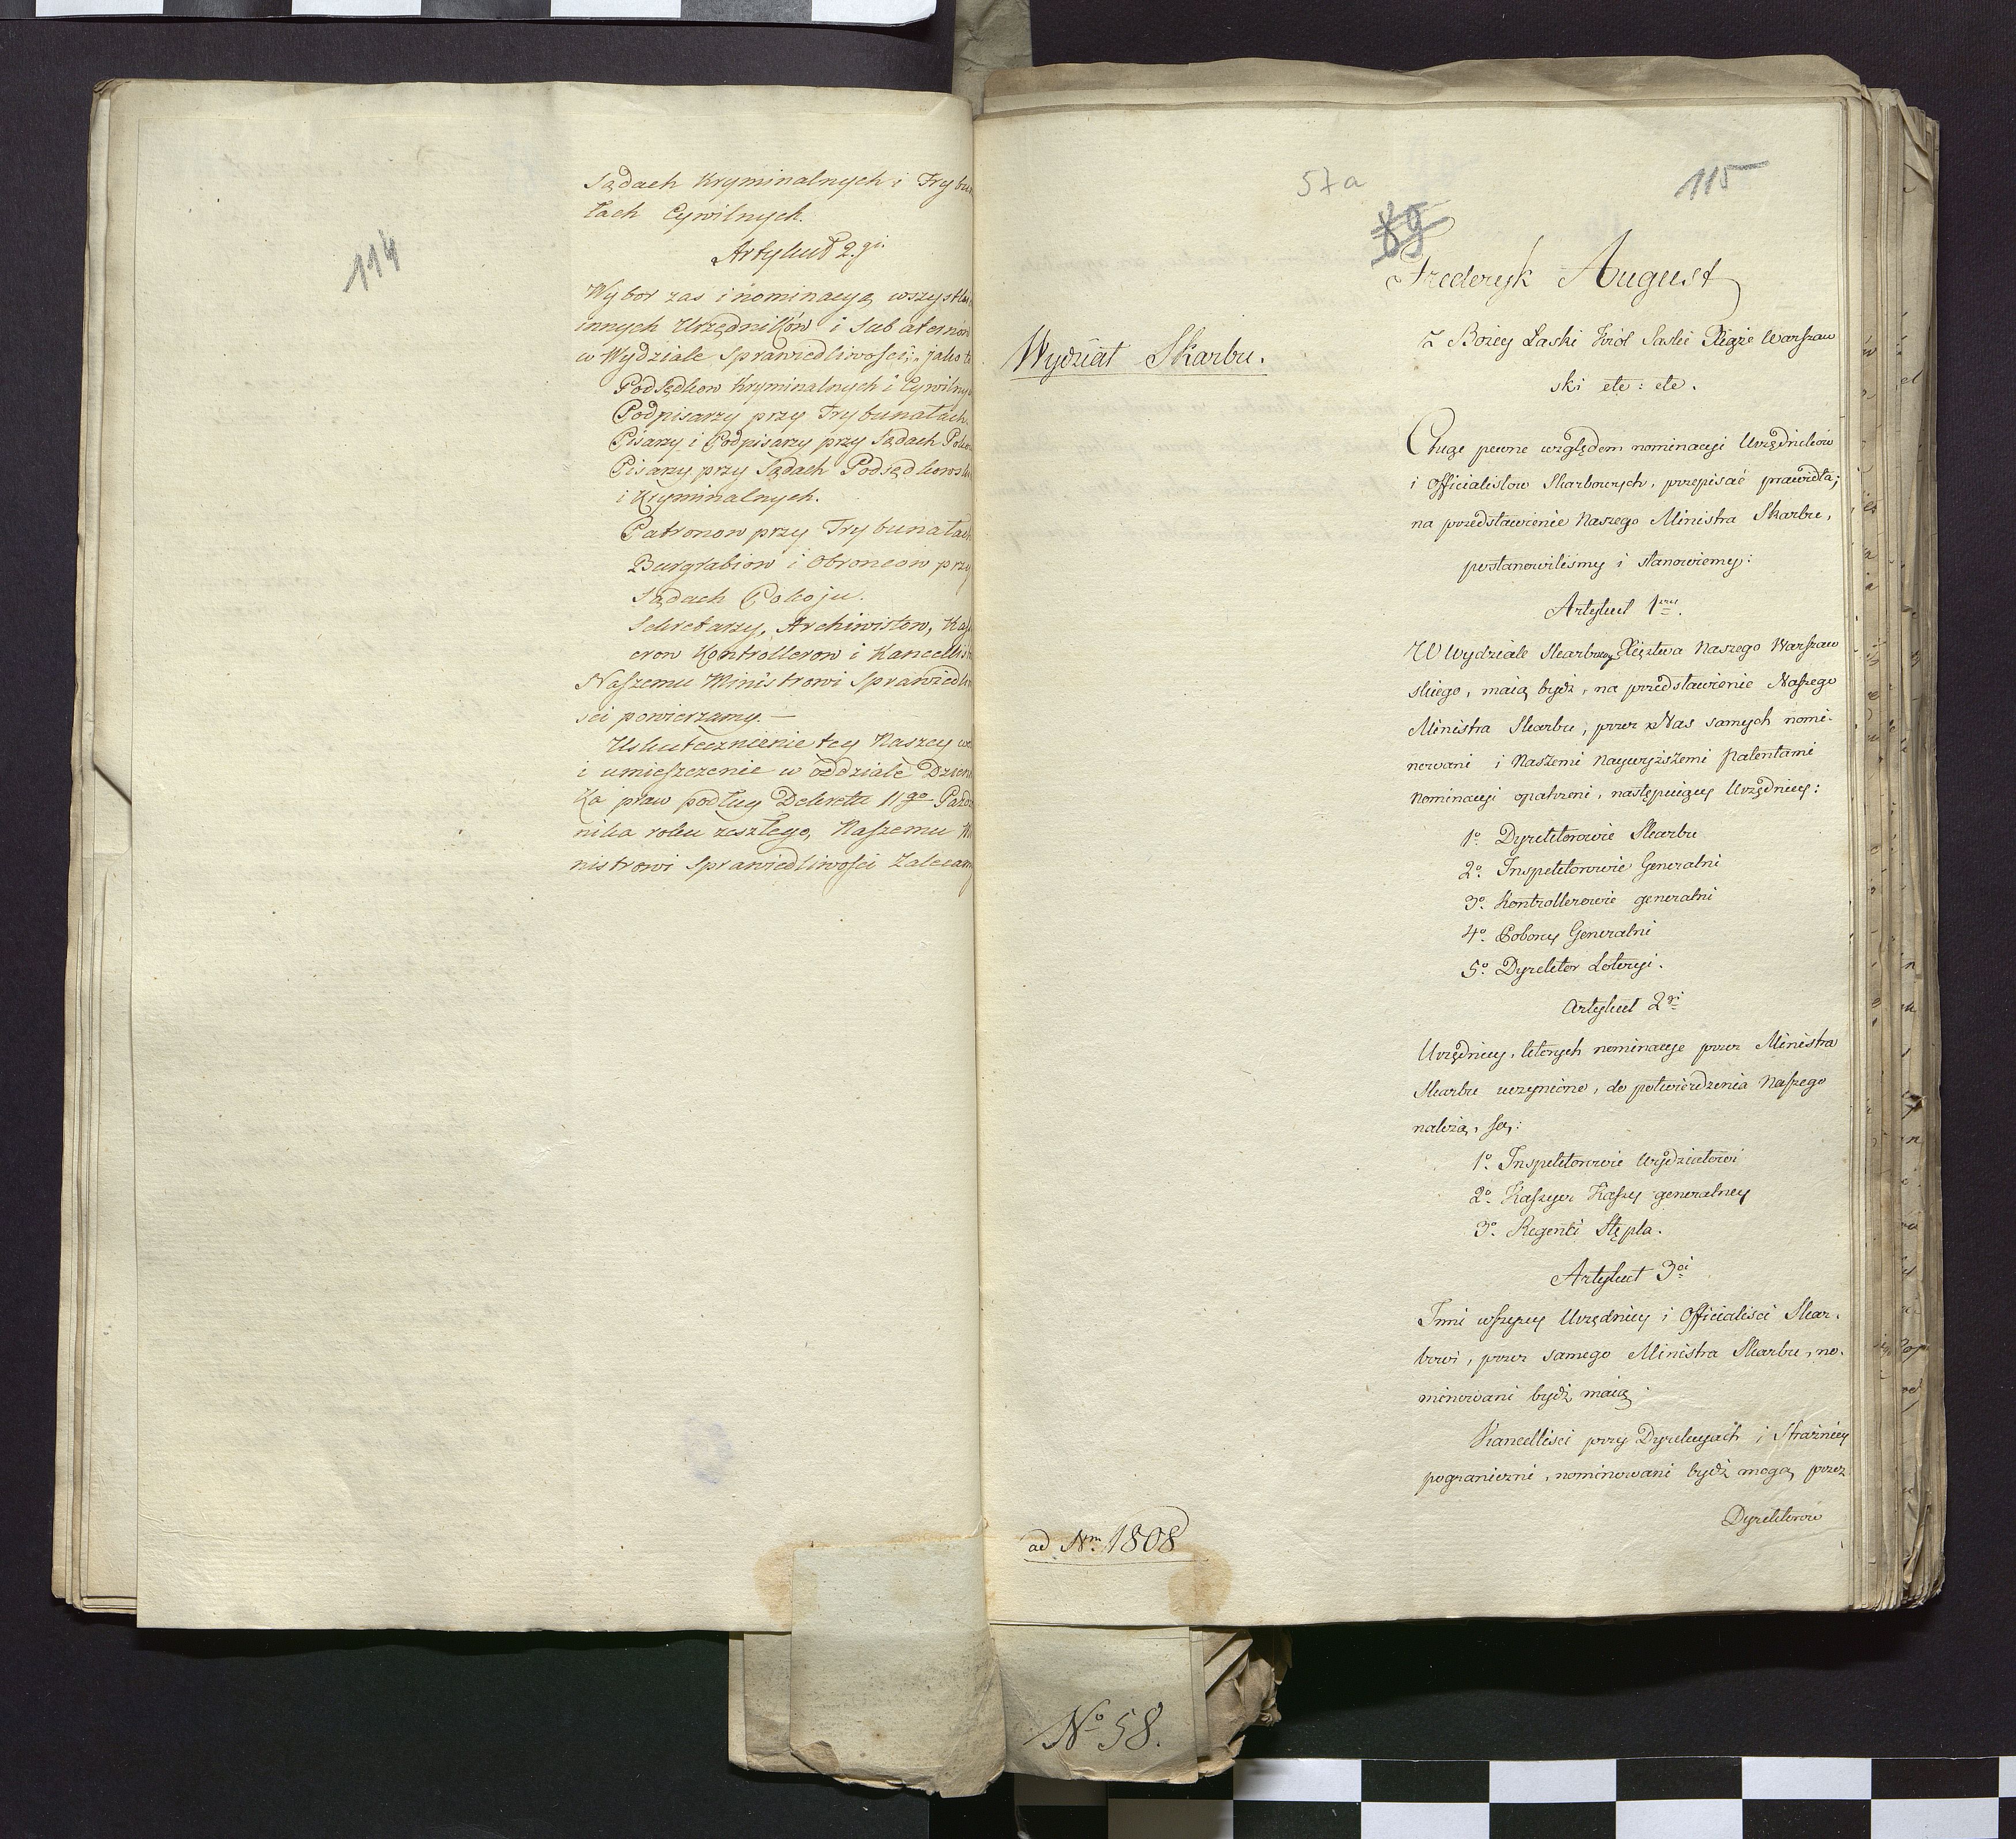 114
Sądach Kryminalnych i Trybu
łach Cywilnych.
Artykuł 2.gi
Wybor zas i nominacyą wszystki
innych Urzędników i Subaternów
w Wydziale Sprawiedliwości, jako to
Podsędkow Kryminalnych i Cywilny
Podpisarzy przy Trybunałach.
Pisarzy i Podpisarzy przy Sądach Poko
Pisarzy przy Sądach Podsędkowsk
i Kryminalnych.
Patronow przy Trybunałach
Burgrabiow i Obroncow przy
Sądach Pokoju.
Sekretarzy, Archiwistow, Kass
erow Kontrollerow i Kancellist
Naszemu Ministrowi Sprawiedliw
ści powierzamy. —
Uskutecznienie tey Naszey wo
i umieszczenie w oddziale Dzien
ka praw podług Dekretu 11go Pazdz
nika roku zeszłego, Naszemu Mi
nistrowi Sprawiedliwości Zalecamy
57a
115
59
Frederyk August
z Bożey Łaski Król Saski Xiąże Warszaw
ski etc: etc.
Wydział Skarbu.
Chcąc pewne względem nominacyi Urzędników
i Officialistow Skarbowych, przepisać prawidła;
na przedstawienie Naszego Ministra Skarbu,
postanowiliśmy i stanowiemy:
Artykuł 1wszy.
W Wydziale Skarbowym Xięztwa Naszego Warszaw
skiego, maią bydź, na przedstawienie Naszego
Ministra Skarbu, przez Nas samych nomi-
nowani i Naszemi Naywyższemi Patentami
Nominacyi opatrzeni, następuiący Urzędnicy:
1o. Dyrektorowie Skarbu
2o. Inspektorowie Generalni
3o. Kontrollerowie generalni
4o. Poborcy Generalni
5o. Dyrektor Loteryi.
Artykuł 2gi
Urzędnicy, ktorych nominacye przez Ministra
Skarbu uczynione, do potwierdzenia Naszego
należą, są:
1o. Inspektorowie Wydziałowi
2o. Kaszyer Kassy generalney
3o. Regenci Stępla.
Artykuł 3ci
Inni wszyscy Urzędnicy i Officialisci Skar-
bowi, przez samego Ministra Skarbu, no-
minowani bydź maią.
Kancellisci przy Dyrekcyach i Strażnicy
pograniczni, nominowani bydź mogą przez
Dyrektorow
ad Nm. 1808
No 58.